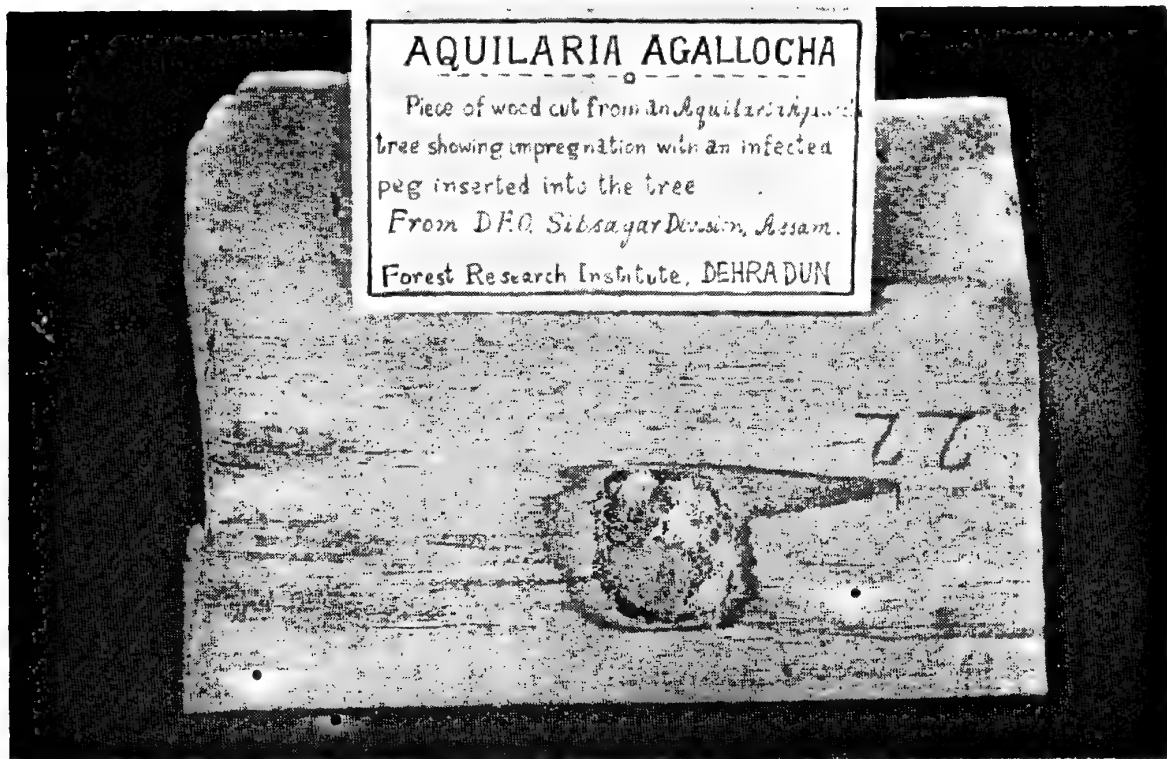 AQUILARIA AGALLOCHA
Piece of wood cut from an Aquilaria
tree showing impregnation with an infected
peg inserted into the tree
From D.F.O. Sibsagar Division, Assam.
Forest Research Institute, DEHRA DUN
22